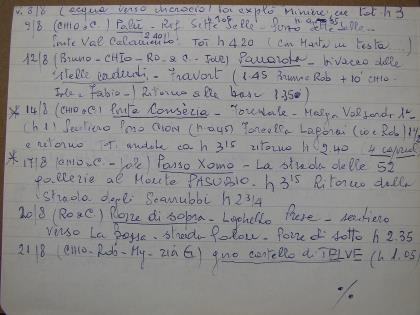 v. 3/8 (acqua verso incrocio) Toi exploit miniere en tot h 3
9/8 (CHIO e C) Palù - Rif. Sette Selle - Passo Sette Selle -
Ponte Val Calamento Tot h 4.20 (con Marta in testa ...)
12/8 (Bruno - CHIO - Ro - & C - Jole) Panarotta - bivacco delle
Stelle cadenti - Fravort (1.45 Bruno e Rob + 10' CHIO -
Jole e Fabio -) Ritorno alla base 1.35
* 14/8 (CHIO e C) Ponte Conseria - Forestale - Malga Valsorda 1a
(h 1) Sentiero Passo CION (h 0.45) Forcella Lagorai (io e Rob)
e ritorno TT. andata ca h 3.15 ritorno h 2.40 (4 caprioli
* 17/8 (CHIO e C - Jole) Passo Xomo - La strada delle 52
gallerie al Monte PASUBIO - h 3.15 Ritorno dalla
Strada degli Scarubbi h 2 3/4
20/8 (Ro & C) Pozze di sopra - Laghello Prese - sentiero
verso La Bassa - strada - Pozze di sotto h 2.35
21/8 (CHIO - Rob - My - zia G) giro castello di TELVE (h 1.05)
%